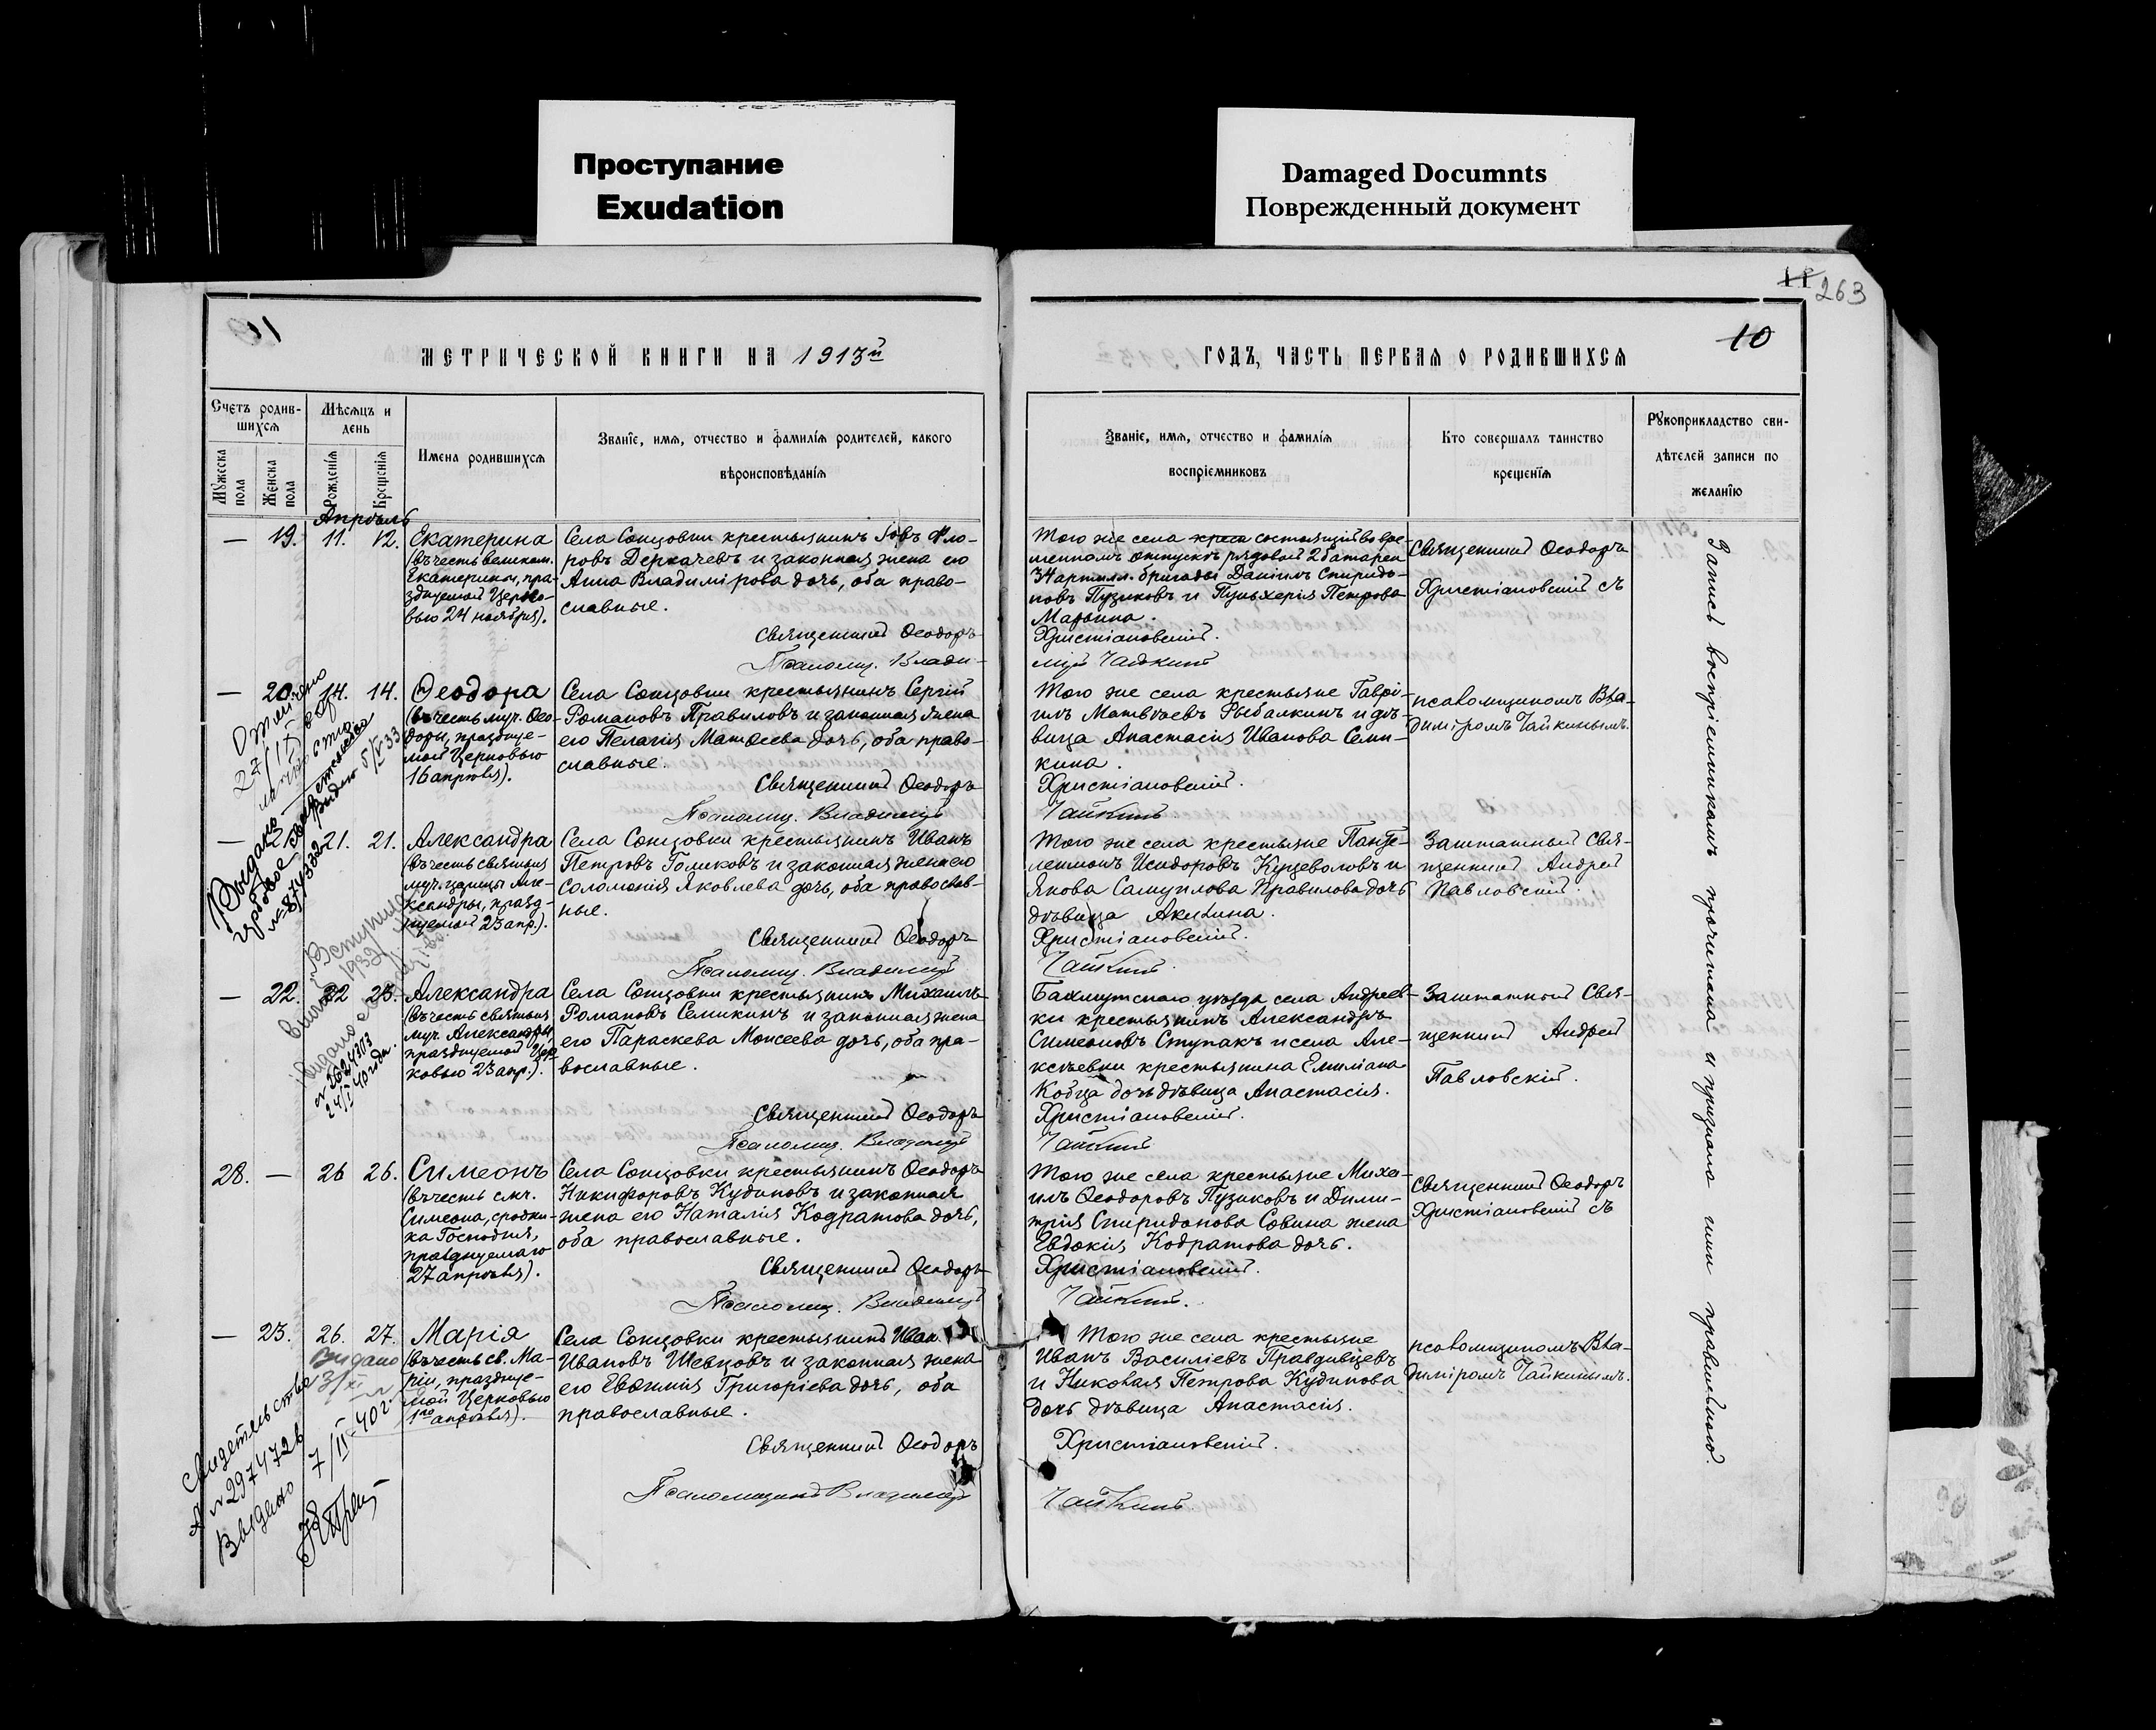 Проступание
Exudation
Damaged Documnts
Поврежденный документ
11
263
10
МЕТРИЧЕСКОЙ КНИГИ НА 1913й
ГОДЪ, ЧАСТЬ ПЕРВАЯ О РОДИВШИХСЯ
Счетъ родив-
шихся
Мѣсяцъ и
день
Мужеска
пола
Женска
пола
Рожденія
Крещенія
Имена родившихся
Званіе, имя, отчество и фамилія родителей, какого
вѣроисповѣданія
Званіе, имя, отчество и фамилія
воспріемниковъ
Кто совершалъ таинство
крещенія
Рукоприкладство сви-
дѣтелей записи по
желанію
Апрѣль
— 19. 11. 12.
Екатерина
(въ честь великом.
Екатерины, пра-
зднуемой Церко-
вью 24 ноября).
Села Сонцовки крестьянинъ Іовъ Фло-
ровъ Деркачевъ и законная жена его
Анна Владимірова дочь, оба право-
славные.
Священникъ Ѳеодоръ
Псаломщ. Влади-
Того же села крест состоящій во вре-
менномъ отпускѣ рядовой 2 батареи
Артилл. бригады Даніилъ Спиридо-
новъ Пузиковъ и Пульхерія Петрова
Марьина.
Христіановскій.
міръ Чайкинъ
Священникъ Ѳеодоръ
Христіановскій съ
— 20. 14. 14.
Ѳеодора
(въ честь муч. Ѳео-
доры, праздную-
мой Церковью
16 апрѣля).
Села Сонцовки крестьянинъ Сергій
Романовъ Правиловъ и законная жена
его Пелагія Матѳеева дочь, оба право-
славные.
Священникъ Ѳеодоръ
Псаломщ. Владиміръ
Того же села крестьяне Гаврі-
илъ Матвѣевъ Рыбалкинъ и дѣ-
вица Анастасія Иванова Семи-
кина.
Христіановскій.
Чайкинъ.
псаломщикомъ Вла-
диміромъ Чайкинымъ.
— 21. 21.
Александра
(въ честь святыя
муч. царицы Але-
ксандры, празд-
нуемой 23 апр.).
Села Сонцовки крестьянинъ Иванъ
Петровъ Голиковъ и законная жена его
Соломонія Яковлева дочь, оба православ-
ные.
Священникъ Ѳеодоръ
Псаломщ. Владиміръ
Того же села крестьяне Панте-
леимонъ Исидоровъ Куцеволовъ и
Якова Самуилова Правилова дочь
дѣвица Акилина.
Христіановскій.
Чайкинъ.
Заштатный Свя-
щенникъ Андрей
Павловскій.
— 22. 22 23.
Александра
(въ честь святыя
муч. Александры,
празднуемой Цер-
ковью 23 апр.).
Села Сонцовки крестьянинъ Михаилъ
Романовъ Семикинъ и законная жена
его Параскева Моисеева дочь, оба пра-
вославные.
Священникъ Ѳеодоръ
Псаломщ. Владиміръ
Бахмутскаго уѣзда села Андреев-
ки крестьянинъ Александръ
Симеоновъ Ступакъ и села Але-
ксѣевки крестьянина Емиліана
Кобца дочь дѣвица Анастасія.
Христіановскій.
Чайкинъ
Заштатный Свя-
щенникъ Андрей
Павловскій.
28. — 26 26.
Симеонъ
(въ честь смч.
Симеона, сродни-
ка Господня,
празднуемаго
27 апрѣля).
Села Сонцовки крестьянинъ Ѳеодоръ
Никифоровъ Кудиновъ и законная
жена его Наталія Кодратова дочь,
оба православные.
Священникъ Ѳеодоръ
Псаломщ. Владиміръ
Того же села крестьяне Миха-
илъ Ѳеодоровъ Пузиковъ и Дими-
трія Спиридонова Совина жена
Евдокія Кодратова дочь.
Христіановскій.
Чайкинъ.
Священникъ Ѳеодоръ
Христіановскій съ
— 23. 26. 27.
Марія
(въ честь св. Ма-
ріи, праздную-
мой Церковью
1го апрѣля).
Села Сонцовки крестьянинъ Иван
Ивановъ Шевцовъ и законная жена
его Евѳимія Григоріева дочь, оба
православные.
Священникъ Ѳеодоръ
Псаломщикъ Владиміръ
Того же села крестьяне
Иванъ Василіевъ Правдивцевъ
и Николая Петрова Кудинова
дочь дѣвица Анастасія.
Христіановскій.
Чайкинъ.
псаломщикомъ Вла-
диміромъ Чайкинымъ.
Запись воспріемникомъ прочитана и признана ими правильною.
Выдано
№ 874332
Выдано 5/V 33
1932
№ 2624303
24/I 40 года.
Видано
3/XI
Свидетельство
№ 297472 б
Выдано 7/II-40 г.